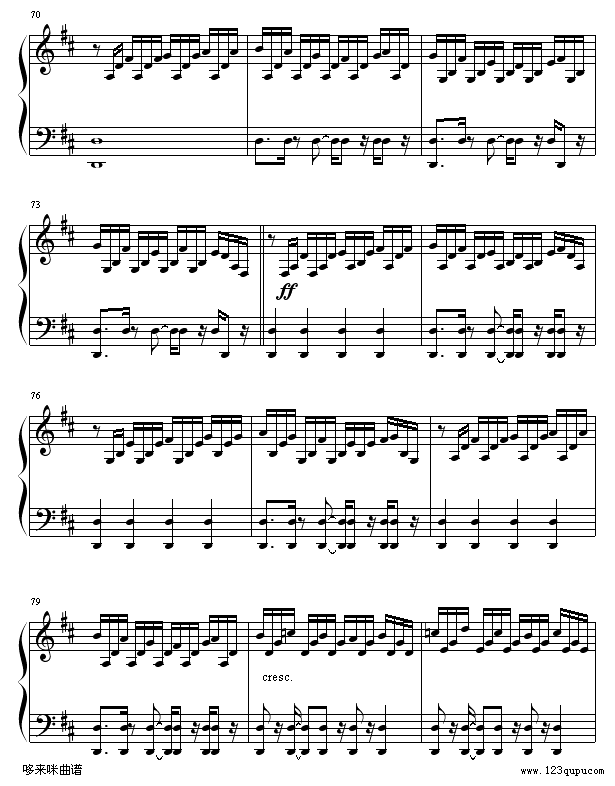 70
73
ff
76
79
cresc.
哆来咪曲谱
www.123qupu.com